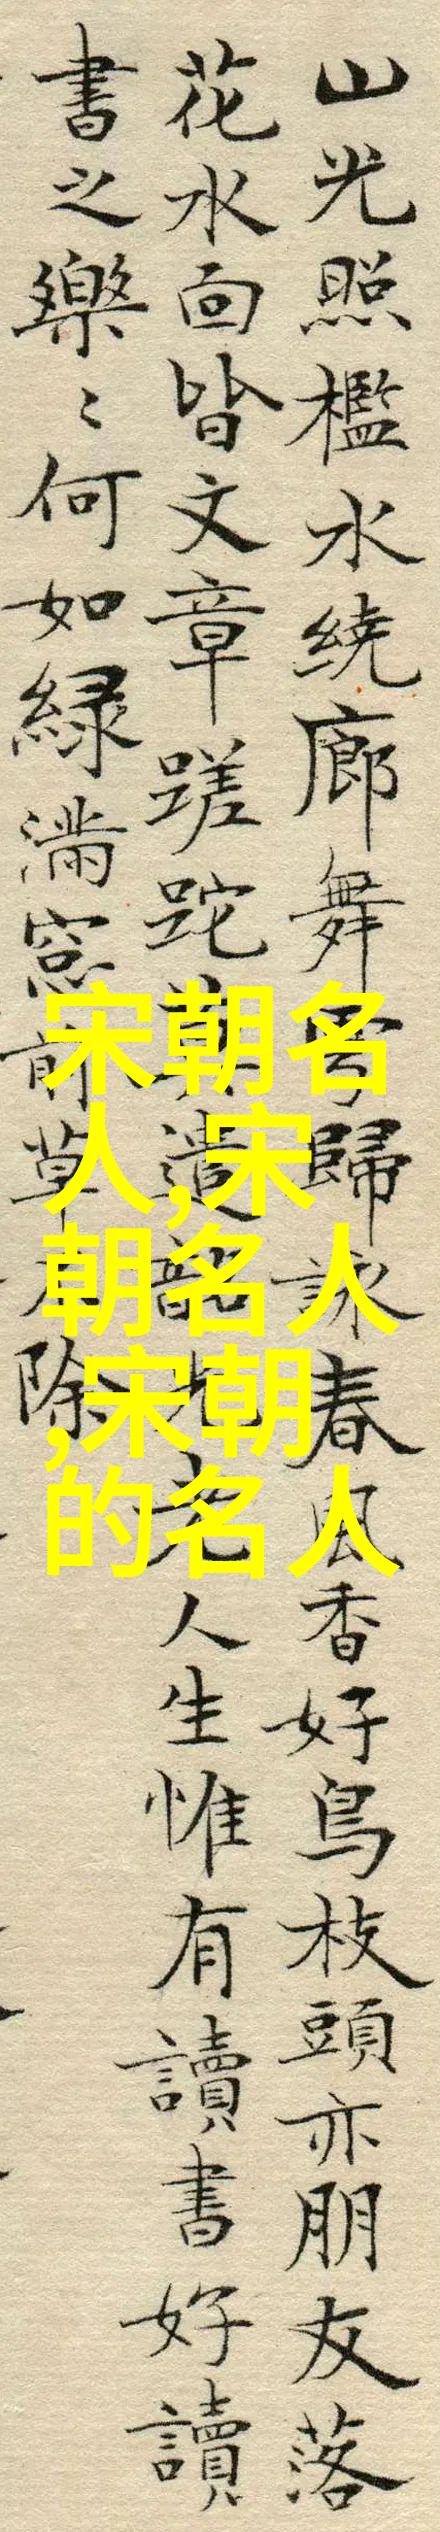 山光照檻水绕廊舞雩歸詠春風香好鳥枝頭亦朋友落
花水面皆文章蹉跎莫遣韶光老人生惟有讀書好讀
書之樂〻何如緑滿窓前草不除
宋朝名
人,宋
朝名人
,宋朝
的名人